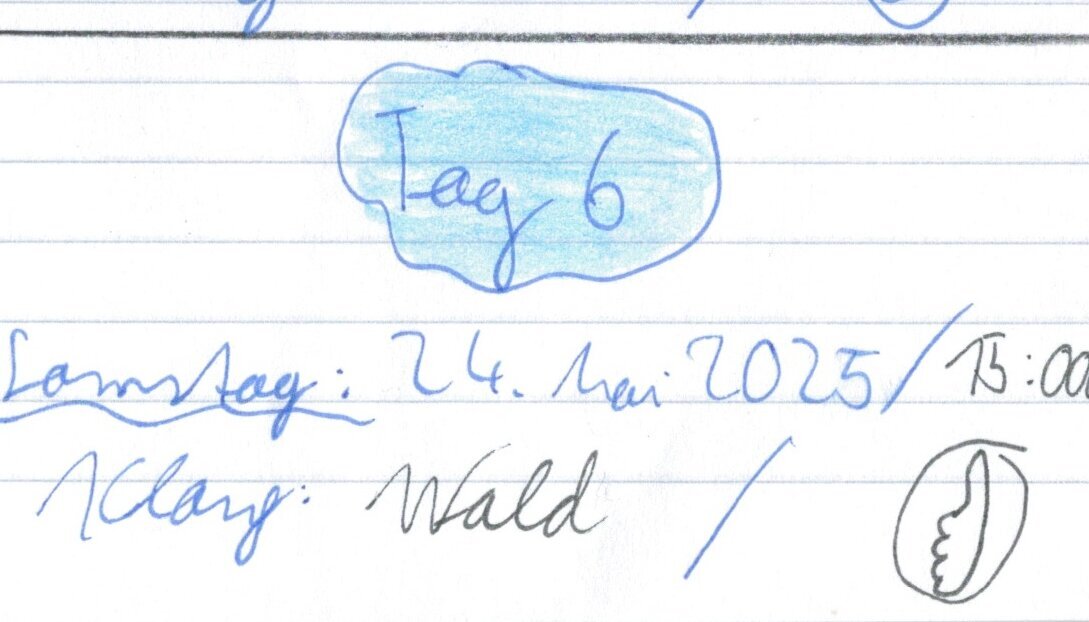 Tag 6
Samstag: 24. Mai 2025 / 15:00
Klang: Wald /